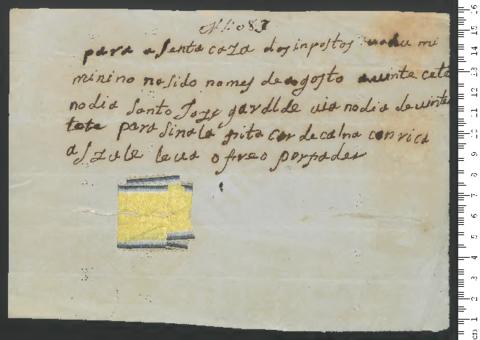 Nº 1087
para a Santa caza dos inpostos uahu mi
minino nasido nomes de agosto auinte cete
nodia Santo Joze gardl de uia nodia de uinte
tote para Sinal a fita cor de cana con rica
a Szul e leua o freo por